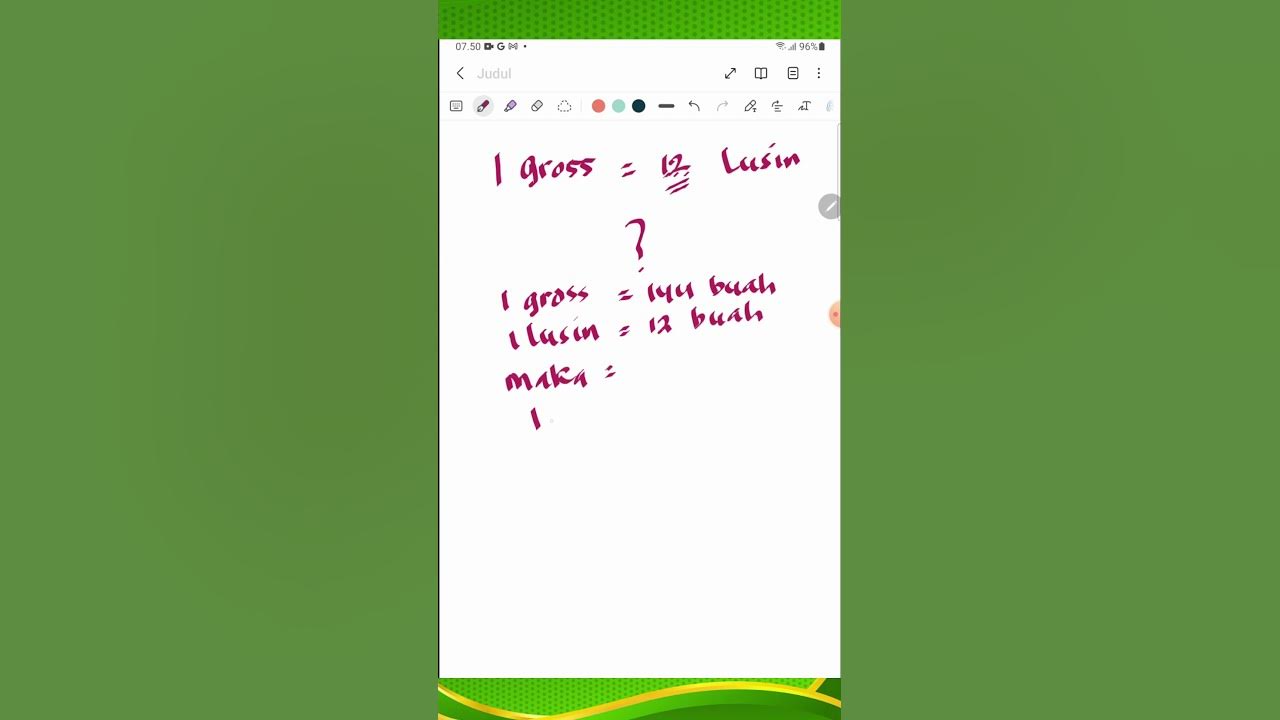 07.50 96%
Judul
1 gross = 12 Lusin
?
1 gross = 144 buah
1 lusin = 12 buah
maka =
1